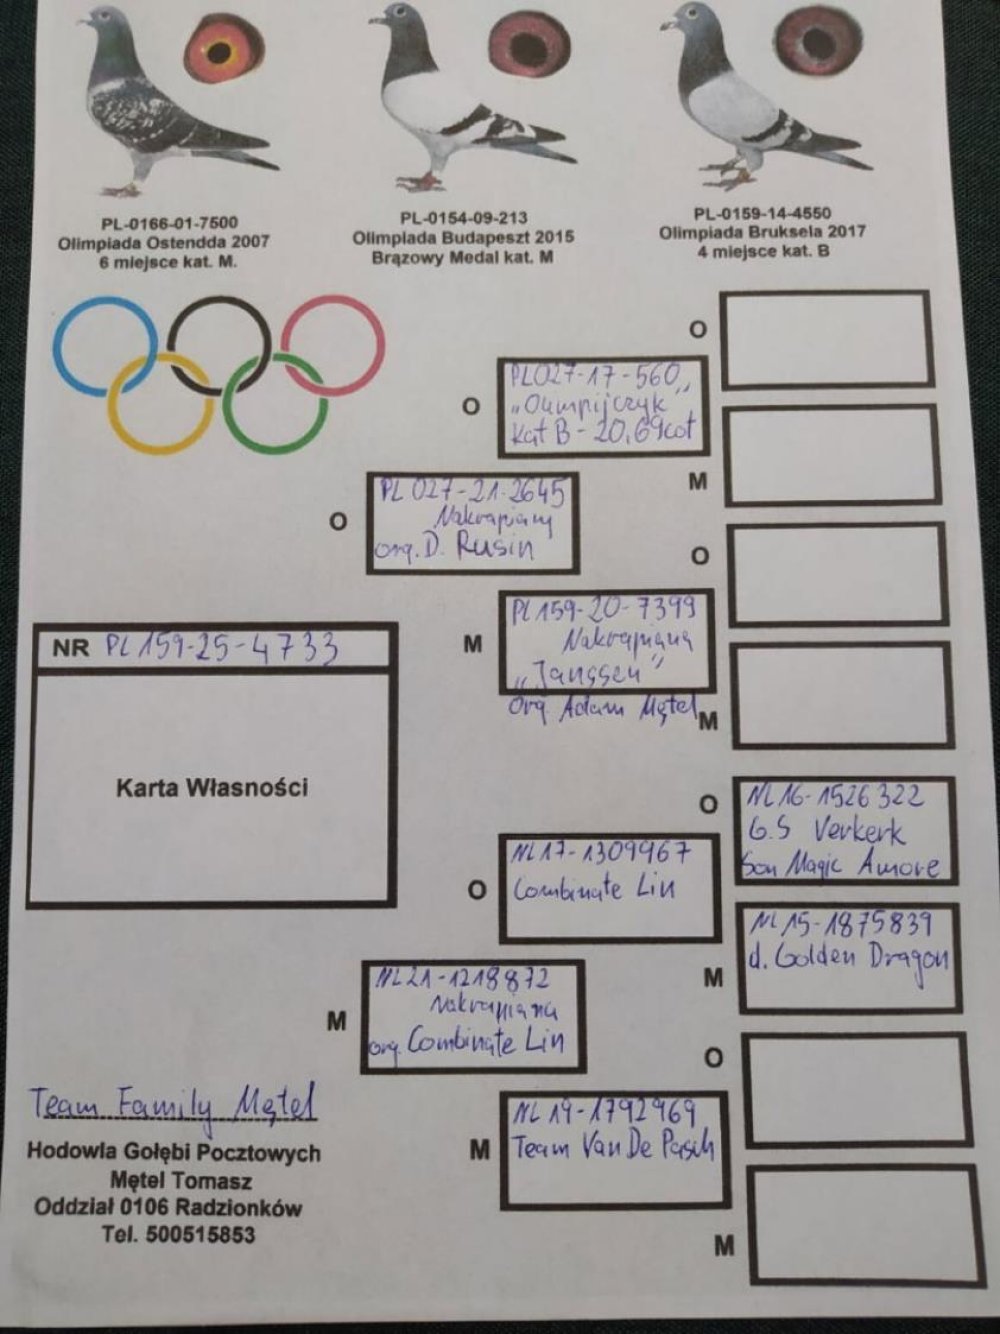 PL-0166-01-7500
Olimpiada Ostendda 2007
6 miejsce kat. M.
PL-0154-09-213
Olimpiada Budapeszt 2015
Brązowy Medal kat. M
PL-0159-14-4550
Olimpiada Bruksela 2017
4 miejsce kat. B
O
O
PL027-17-560
„Olimpijczyk”
kat B - 20,69cot
M
O
PL 027-21-2645
Nakrapiany
org. D. Rusin
O
M
PL159-20-7399
Nakrapiana
„Janssen”
org. Adam Mętel
M
NR PL159-25-4733
Karta Własności
O
NL16-1526322
G.S Verkerk
Son Magic Amore
O
NL17-1309967
Combinate Lin
M
NL15-1875839
d. Golden Dragon
M
NL21-1218872
Nakrapiana
org. Combinate Lin
O
M
NL19-1792969
Team Van De Pasch
M
Team Family Mętel
Hodowla Gołębi Pocztowych
Mętel Tomasz
Oddział 0106 Radzionków
Tel. 500515853